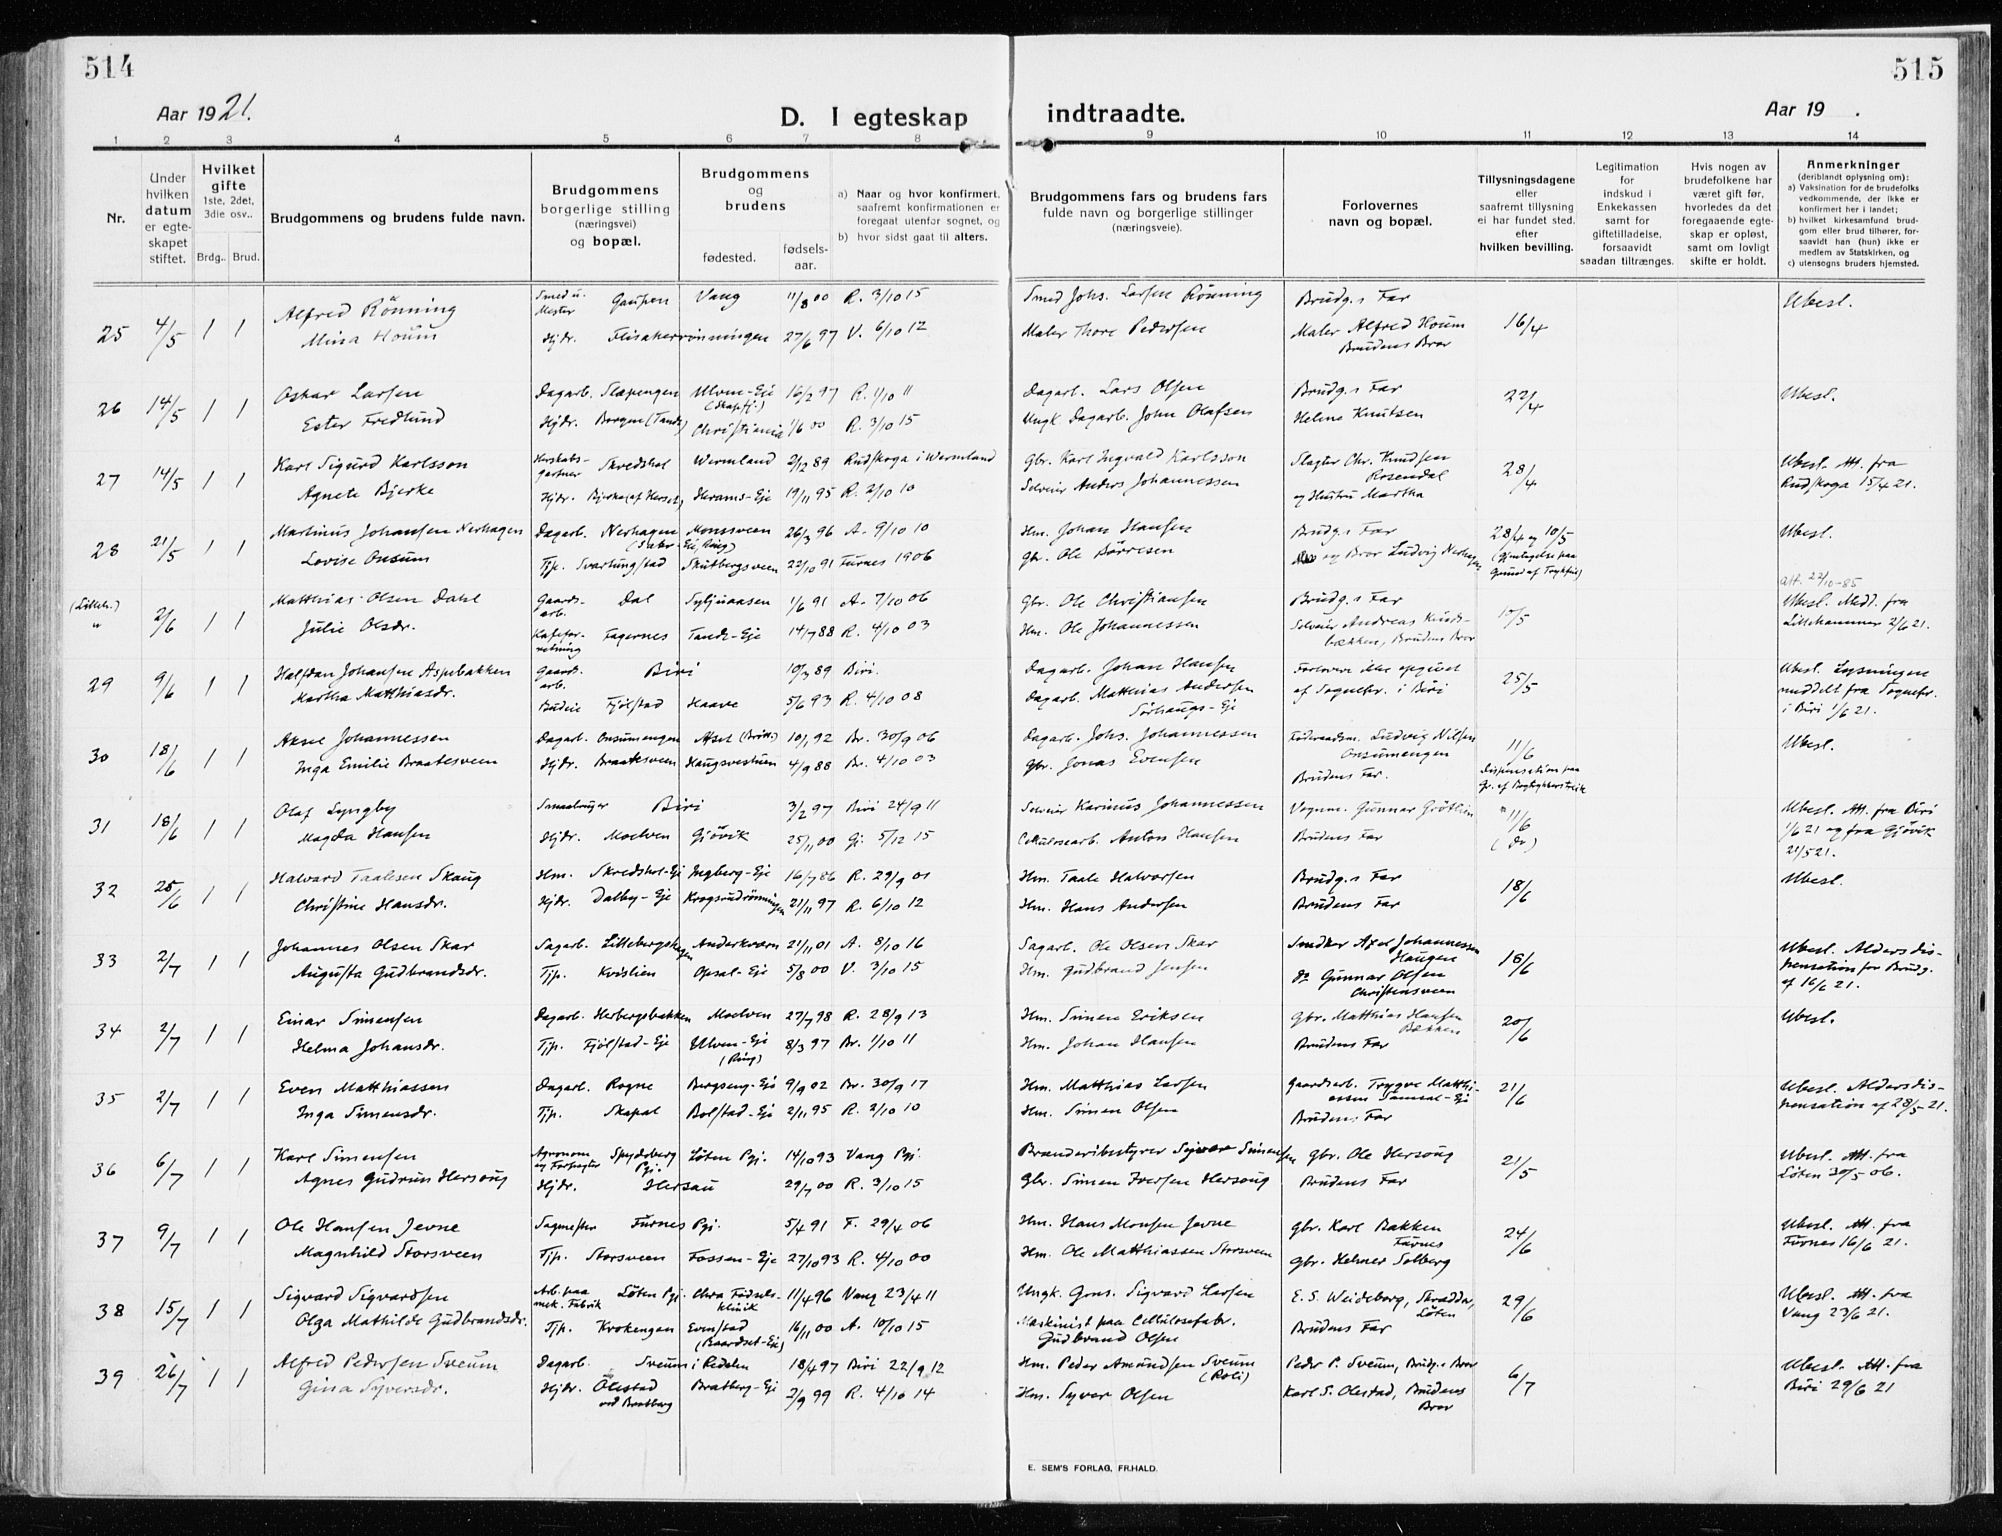 514
515
Aar 1921.
D. I egteskap indtraadte.
Aar 19 .
1 2 3 4 5 6 7 8 9 10 11 12 13 14
Nr.
Under hvilken datum er egteskapet stiftet.
Hvilket gifte 1ste, 2det, 3die osv..
Brdg.. Brud.
Brudgommens og brudens fulde navn.
Brudgommens borgerlige stilling (næringsvei) og bopæl.
Brudgommens og brudens
fødested.
fødsels-aar.
a) Naar og hvor konfirmert, saafremt konfirmationen er foregaat utenfor sognet, og
b) hvor sidst gaat til alters.
Brudgommens fars og brudens fars fulde navn og borgerlige stillinger (næringsveie).
Forlovernes navn og bopæl.
Tillysningsdagene eller saafremt tillysning ei har fundet sted. efter hvilken bevilling.
Legitimation for indskud i Enkekassen samt for giftetilladelse, forsaavidt saadan tiltrænges.
Hvis nogen av brudefolkene har været gift før, hvorledes da det foregaaende egteskap er opløst, samt om lovligt skifte er holdt.
Anmerkninger (deriblandt oplysning om):
a) Vaksination for de brudefolks vedkommende, der ikke er konfirmert her i landet;
b) hvilket kirkesamfund brudgom eller brud tilhører, forsaavidt han (hun) ikke er medlem av Statskirken, og
c) utensogns bruders hjemsted.
25 4/5 1 1 Alfred Rönning Smed u. Mester Gaupen Vang 11/8 00 R. 3/10 15 Smed Johs. Larsen Rönning Brudg.s Far 16/4 Ubesl.
Mina Houm Hjdr. Flisakerrönningen 27/6 97 V. 6/10 12 Maler Thore Pedersen Maler Alfred Houm
Brudens Bror
26 14/5 1 1 Oskar Larsen Dagarb. Slapengen Ulven-Eje 16/2 97 R. 1/10 11 Dagarb. Lars Olsen Brudg.s Far 22/4 Ubesl.
Ester Fredlund Hjdr. Borgne (Tande) Christiania 1/6 00 R. 3/10 15 Ungk. Dagarb. John Olafsen Helene Knutsen
27 14/5 1 1 Karl Sigurd Karlsson Herskabsgartner Skredshol Wermland 2/12 89 Rudskoga i Wermland Gbr. Karl Ingvald Karlsson Slagter Chr. Knudsen Rosendal 28/4 Ubesl. Att. fra
Agnete Bjerke Hjdr. Bjerke (af Herset) Herams-Eje 19/11 95 R. 2/10 10 Selveier Anders Johannessen og Hustru Martha Rudskoga 15/4 21.
28 21/5 1 1 Martinus Johansen Nerhagen Dagarb. Nerhagen Monssveen 26/3 96 A. 9/10 10 Hm. Johan Hansen Brudg.s Far 28/4 og 10/5 Ubesl.
Lovise Onsum Tjp. Svartungstad Skutbergsveen 22/10 91 Furnes 1906 Gbr. Ole Börresen og Bror Ludvig Nerhagen (Gjentagelse paa
Grund af Trykfeil)
Att. 22/10-85
(Lilleh.) " 2/6 1 1 Matthias Olsen Dahl Gaardsarb. Dal Syljuaasen 1/6 91 A. 7/10 06 Gbr. Ole Christiansen Brudg.s Far 15/5 Ubesl. Medd. fra
Julie Olsdr. Kafeforretning Fagernes Tande-Eje 14/7 88 R. 4/10 03 Hm. Ole Johannessen Selveier Andreas Kindsbækken, Brudens Bror Lillehammer 2/6 21.
29 9/6 1 1 Halfdan Johansen Aspebakken Gaardsarb. Biri 10/3 89 Biri. Dagarb. Johan Hansen Forlovere ikke opgivet 25/5 Ubesl. Lysningen
Martha Matthiasdr. Budeie Fjölstad Haave 5/6 93 R. 4/10 08 Dagarb. Matthias Andersen af Sognepr. i Biri meddelt fra Sognepr.
Sörhaugs-Eje i Biri 1/6 21.
30 18/6 1 1 Aksel Johannessen Dagarb. Onsumengen 10/1 92 Br. 30/9 06 Dagarb. Johs. Johannessen Föderaadsm. Ludvig Nilsen Onsumengen 11/6 Ubesl.
Inga Emilie Braatesveen Hjdr. Braatesveen Haugsvestuen 4/9 88 Br. 4/10 03 Gbr. Jonas Evensen Brudens Far. Dispensation paa
31 18/6 1 1 Olaf Lyngby Smaabruger Biri 3/2 97 Biri 24/9 11 Selveier Karinus Johannessen Vognm. Gunnar Grötlien 11/6 Ubesl. Att. fra Biri
Magda Hansen Hjdr. Moelven Gjövik 25/11 00 Gj. 5/12 15 Cellulosearb. Anton Hansen Brudens Far (Do) 1/6 21 og fra Gjövik
21/5 21.
32 25/6 1 1 Halvard Taalesen Skaug Hm. Skredshol-Eje Ingberg-Eje 16/7 86 R. 29/9 01 Hm. Taale Halvorsen Brudg.s Far 18/6 Ubesl.
Christine Hansdr. Hjdr. Dalby-Eje Krogsrudrönningen 21/11 97 R. 6/10 12 Hm. Hans Andersen Brudens Far
33 2/7 1 1 Johannes Olsen Skar Sagarb. Lillebergshagen Anderkværn 21/11 01 A. 8/10 16 Sagarb. Ole Olsen Skar Snedker Axel Johannessen Haugen 18/6 Ubesl. Aldersdis-
Augusta Gudbrandsdr. Tjp. Kvislien Opsal-Eje 5/8 00 V. 3/10 15 Hm. Gudbrand Jensen do Gunnar Olsen Christensveen pensation for Brudg.
af 16/6 21.
34 2/7 1 1 Einar Simensen Dagarb. Herbergsbakken Moelven 27/7 98 R. 28/9 13 Hm. Simen Eriksen Gbr. Matthias Hansen Bækken 20/6 Ubesl.
Helma Johansdr. Tjp. Fjölstad-Eje Ulven-Eje (Ring) 8/3 97 Br. 1/10 11 Hm. Johan Hansen Brudens Far
35 2/7 1 1 Even Matthiassen Dagarb. Rogne Bergseng-Eje 9/9 02 Br. 30/9 17 Hm. Matthias Larsen Gaardsarb. Trygve Matthiassen Samsal-Eje 21/6 Ubesl. Aldersdis-
Inga Simensdr. Tjp. Skapal Bolstad-Eje 2/11 95 R. 2/10 10 Hm. Simen Olsen Brudens Far pensation af 28/5 21.
36 6/7 1 1 Karl Simensen Agronom og Forpagter Spydeberg Pgj. Löten Pgj. 14/10 93 Vang Pgj. Brænderibestyrer Syver Simensen Gbr. Ole Hersoug 21/5 Ubesl. Att. fra
Agnes Gudrun Hersoug Hjdr. Hersau 29/7 00 R. 3/10 15 Gbr. Simen Iversen Hersoug Brudens Far Löten 30/5 06.
37 9/7 1 1 Ole Hansen Jevne Sagmester Furnes Pgj. 5/4 91 F. 29/4 06 Hm. Hans Monsen Jevne Gbr. Karl Bakken Furnes 24/6 Ubesl. Att. fra
Magnhild Storsveen Tjp. Storsveen Fossen-Eje 27/10 93 R. 4/10 00 Hm. Ole Matthiassen Storsveen Gbr. Helmer Solberg Furnes 16/6 21.
38 15/7 1 1 Sigvard Sigvardsen Arb. paa mek. Fabrik Löten Pgj. Chra Födselsklinik 11/4 96 Vang 23/4 11 Ungk. Gens. Sigvard Larsen E. S. Weideborg, Skrædder, Löten 29/6 Ubesl. Att. fra
Olga Mathilde Gudbrandsdr. Tjp. Krokengen Evenstad (Baardset-Eje) 16/11 00 A. 10/10 15 Maskinist paa Cellulosefabr. Gudbrand Olsen Brudens Far Vang 23/6 21.
39 26/7 1 1 Alfred Pedersen Sveum Dagarb. Sveum i Redalen 18/4 97 Biri 22/9 12 Hm. Peder Amundsen Sveum Peder P. Sveum, Brudg.s Bror 6/7 Ubesl. Att. fra
Gina Syversdr. Hjdr. Ölestad ved Bratberg Bratberg-Eje 2/9 99 R. 4/10 14 Hm. Syver Olsen Karl S. Olestad, Brudens Bror Biri 29/6 21
E. SEM'S FORLAG, FR.HALD.